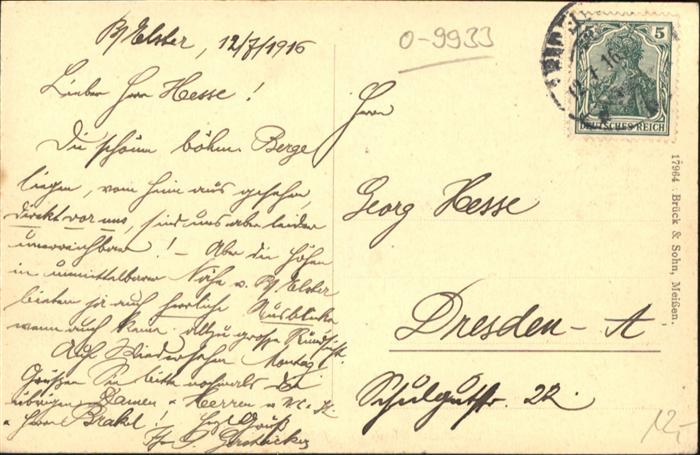 B/Elster, 12/7/1916
Lieber Herr Hesse!
Die schönen böhm. Berge
liegen, vom Heim aus gesehen,
direkt vor uns, sind uns aber leider
unerreichbar! – Aber die Höhen
in unmittelbarer Nähe v. B/Elster
bieten ja auch herrliche Ausblicke
wenn auch keine allzu große Rundsicht.
Auf Wiedersehen Montag!
Grüßen Sie bitte nochmals die
übrigen Damen u Herren
u Herrn Brakel! Gruß
0-9933
Herrn
Georg Hesse
Dresden-A
Schulgutstr. 22.
5
DEUTSCHES REICH
17964 Brück & Sohn, Meißen,
12,-